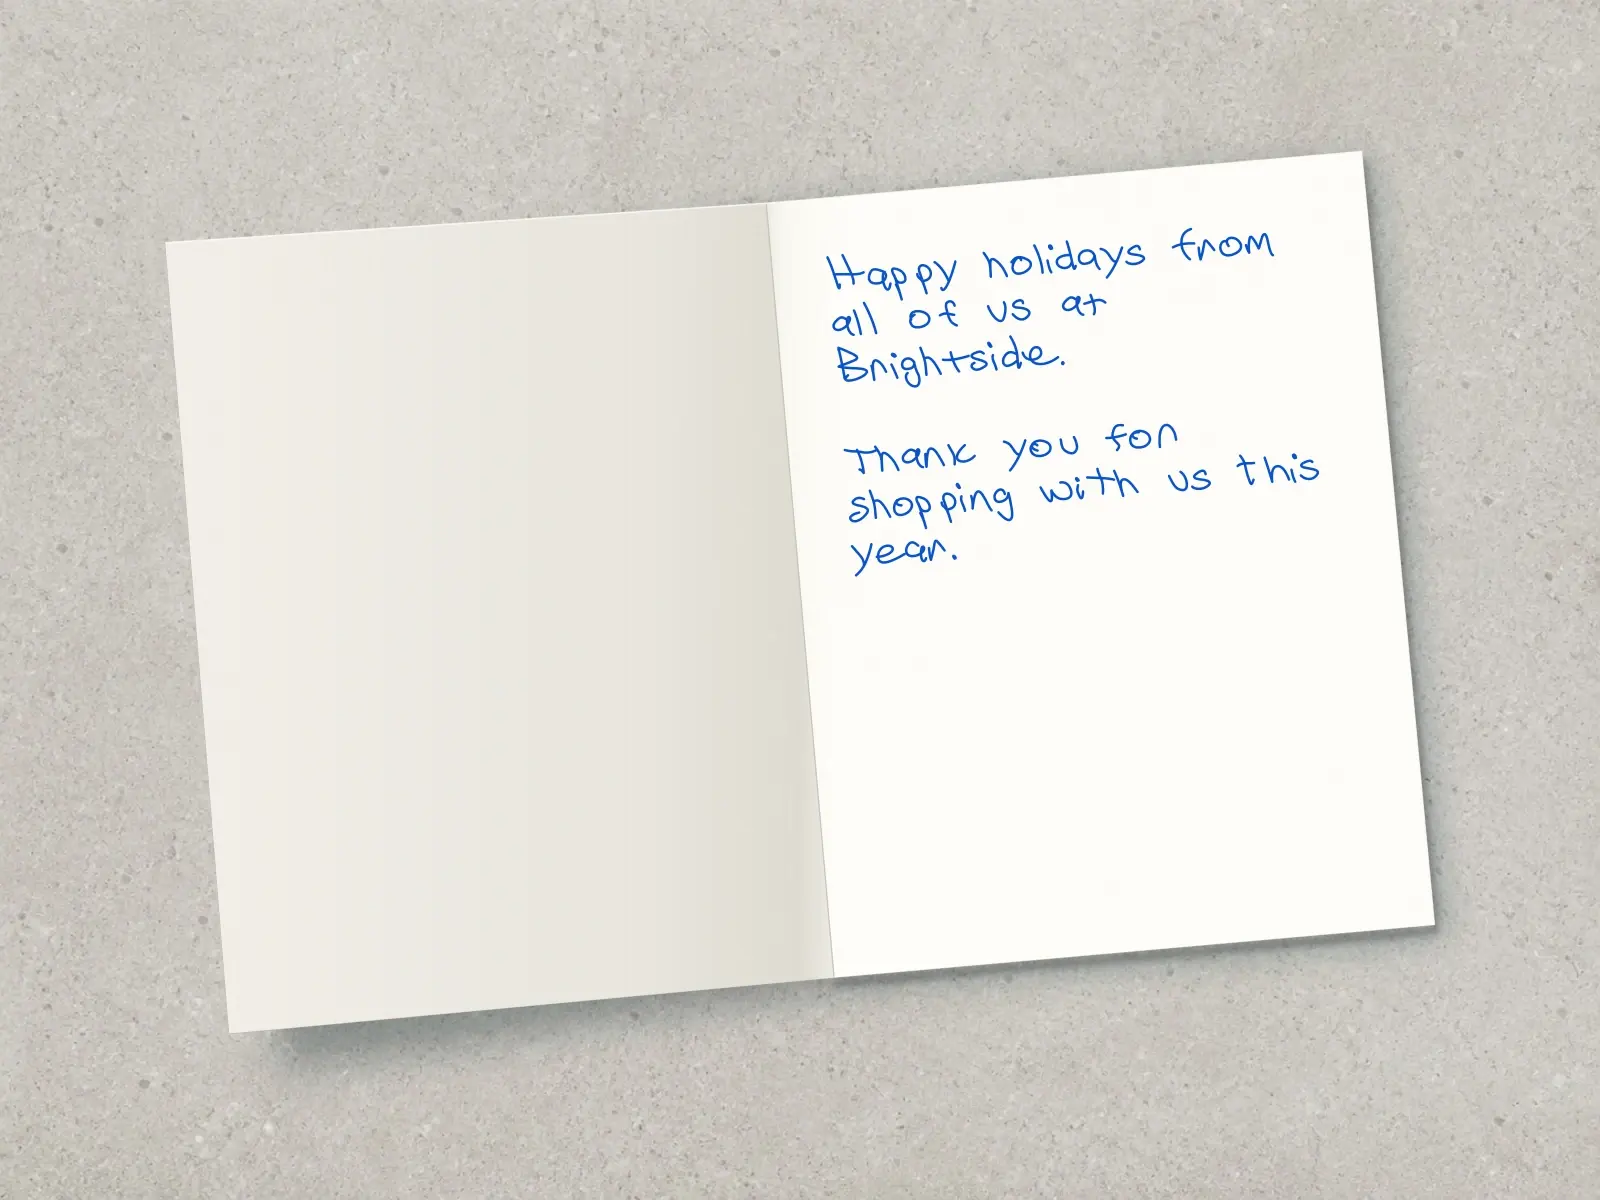 Happy holidays from
all of us at
Brightside.
Thank you for
shopping with us this
year.